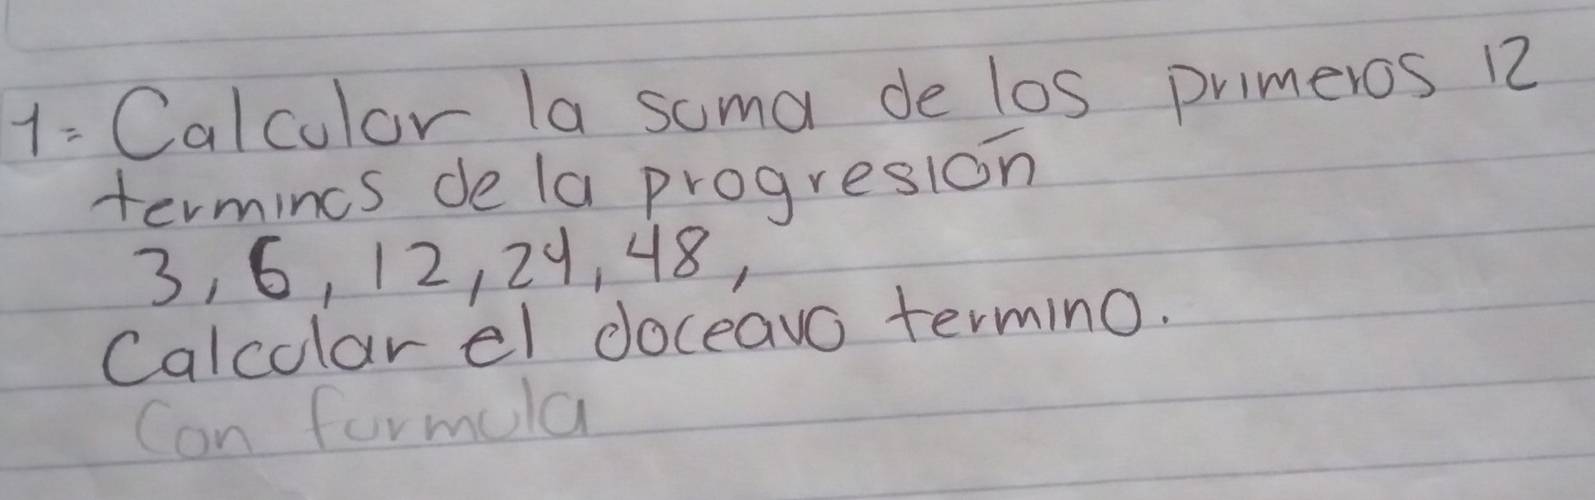 1= Calcular la suma de los primeros 12
terminos de la progresión
3, 6, 12, 24, 48,
Calcular el doceavo termino.
Con formula